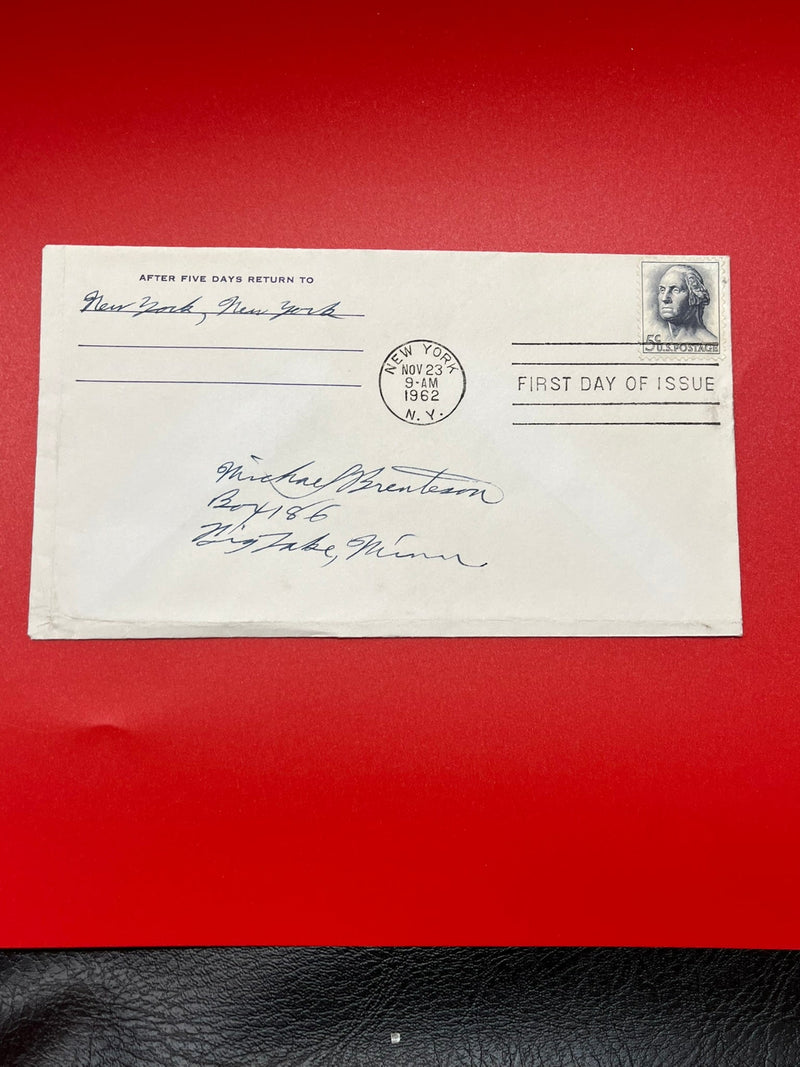 AFTER FIVE DAYS RETURN TO
New York, New York
5¢
U.S. POSTAGE
NEW YORK
NOV 23
9-AM
1962
N.Y.
FIRST DAY OF ISSUE
Michael Brenteson
Box 186
Big Lake, Minn